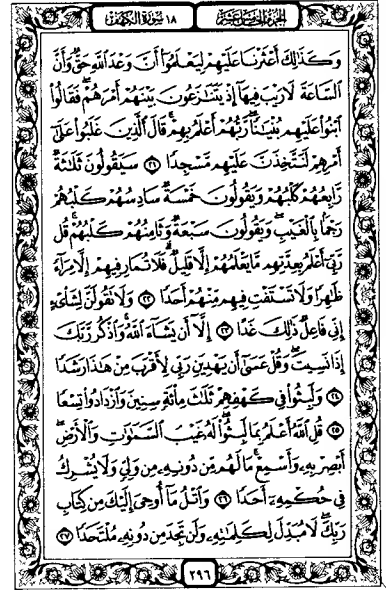 الجزء الخامس عشر ١٨ سورة الكهف
وَكَذَٰلِكَ أَعْثَرْنَا عَلَيْهِمْ لِيَعْلَمُوٓا۟ أَنَّ وَعْدَ ٱللَّهِ حَقٌّ وَأَنَّ
ٱلسَّاعَةَ لَا رَيْبَ فِيهَآ إِذْ يَتَنَٰزَعُونَ بَيْنَهُمْ أَمْرَهُمْ فَقَالُوا۟
ٱبْنُوا۟ عَلَيْهِم بُنْيَٰنًا رَّبُّهُمْ أَعْلَمُ بِهِمْ قَالَ ٱلَّذِينَ غَلَبُوا۟ عَلَىٰٓ
أَمْرِهِمْ لَنَتَّخِذَنَّ عَلَيْهِم مَّسْجِدًا ٢١ سَيَقُولُونَ ثَلَٰثَةٌ
رَّابِعُهُمْ كَلْبُهُمْ وَيَقُولُونَ خَمْسَةٌ سَادِسُهُمْ كَلْبُهُمْ
رَجْمًۢا بِٱلْغَيْبِ وَيَقُولُونَ سَبْعَةٌ وَثَامِنُهُمْ كَلْبُهُمْ قُل
رَّبِّىٓ أَعْلَمُ بِعِدَّتِهِم مَّا يَعْلَمُهُمْ إِلَّا قَلِيلٌ فَلَا تُمَارِ فِيهِمْ إِلَّا مِرَآءً
ظَٰهِرًا وَلَا تَسْتَفْتِ فِيهِم مِّنْهُمْ أَحَدًا ٢٢ وَلَا تَقُولَنَّ لِشَا۟ىْءٍ
إِنِّى فَاعِلٌ ذَٰلِكَ غَدًا ٢٣ إِلَّآ أَن يَشَآءَ ٱللَّهُ وَٱذْكُر رَّبَّكَ
إِذَا نَسِيتَ وَقُلْ عَسَىٰٓ أَن يَهْدِيَنِ رَبِّى لِأَقْرَبَ مِنْ هَٰذَا رَشَدًا
٢٤ وَلَبِثُوا۟ فِى كَهْفِهِمْ ثَلَٰثَ مِا۟ئَةٍ سِنِينَ وَٱزْدَادُوا۟ تِسْعًا
٢٥ قُلِ ٱللَّهُ أَعْلَمُ بِمَا لَبِثُوا۟ لَهُۥ غَيْبُ ٱلسَّمَٰوَٰتِ وَٱلْأَرْضِ
أَبْصِرْ بِهِۦ وَأَسْمِعْ مَا لَهُم مِّن دُونِهِۦ مِن وَلِىٍّ وَلَا يُشْرِكُ
فِى حُكْمِهِۦٓ أَحَدًا ٢٦ وَٱتْلُ مَآ أُوحِىَ إِلَيْكَ مِن كِتَابِ
رَبِّكَ لَا مُبَدِّلَ لِكَلِمَٰتِهِۦ وَلَن تَجِدَ مِن دُونِهِۦ مُلْتَحَدًا ٢٧
٢٩٦